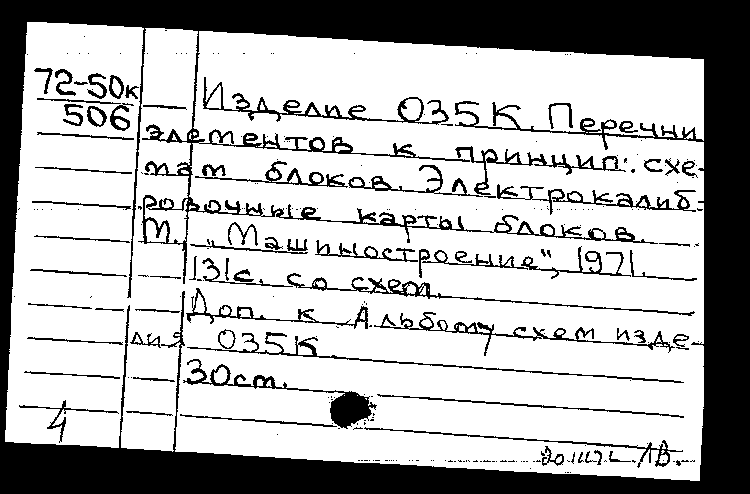 72-50к
506
Изделие О35К. Перечни
элементов к принцип. схе-
мам блоков. Электрокалиб-
ровочные карты блоков.
М., „Машиностроение", 1971.
131с. со схем.
Доп. к Альбому схем изде-
лия О35К.
30см.
4
ЛВ.